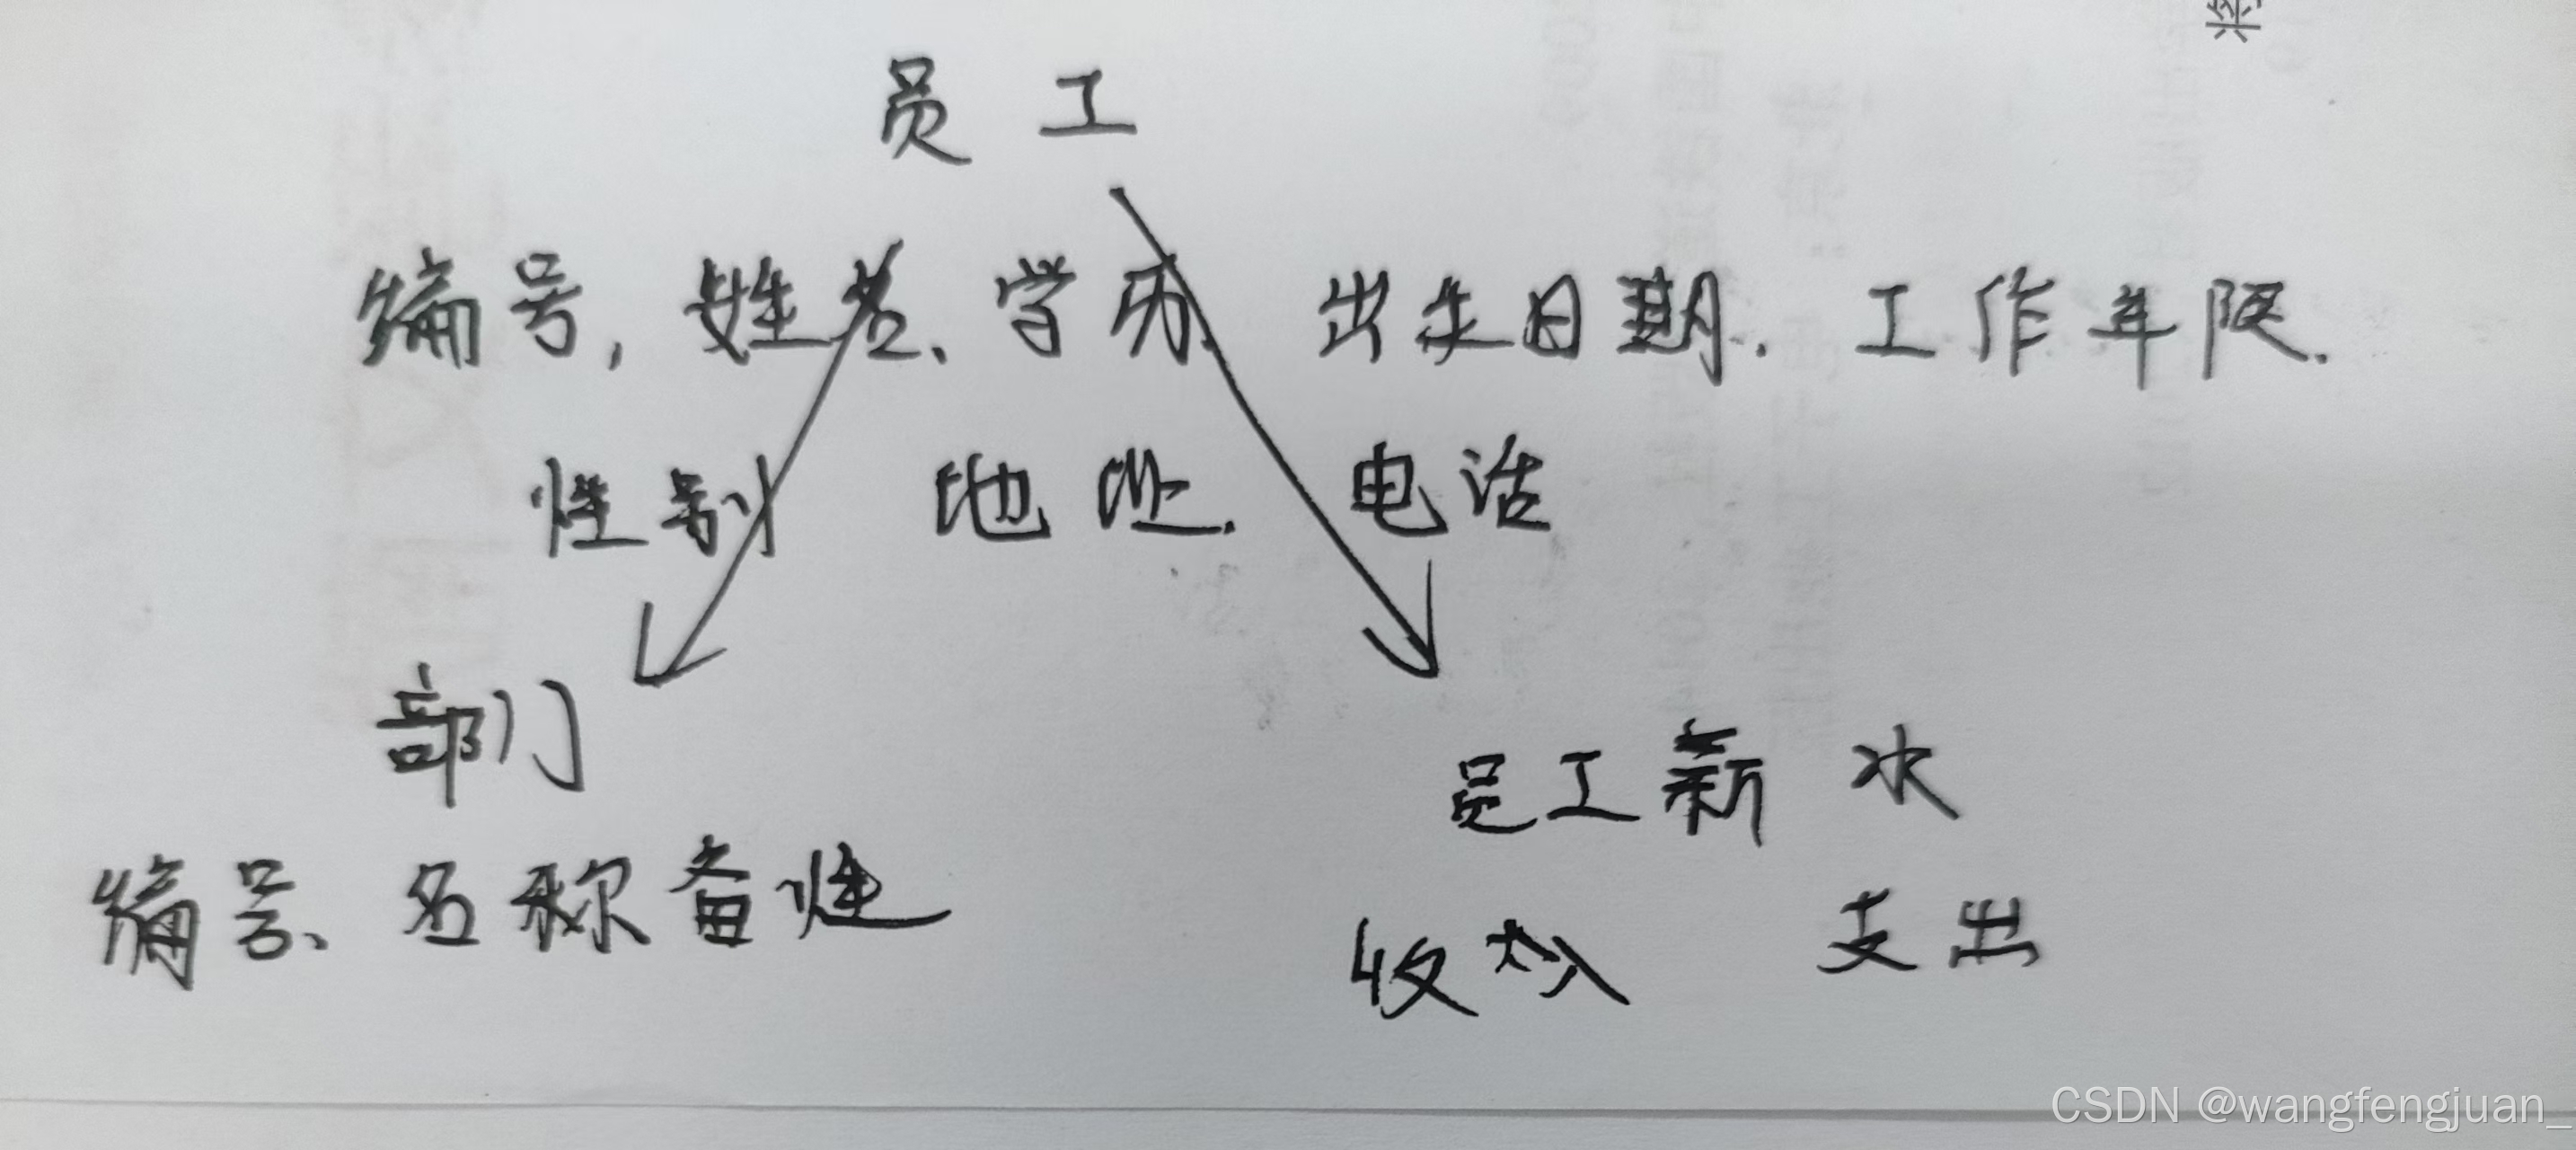 员工
编号,姓名、学历 出生日期.工作年限.
性别 地址.电话
部门
员工薪水
编号、名称备注
收入 支出
CSDN @wangfengjuan_